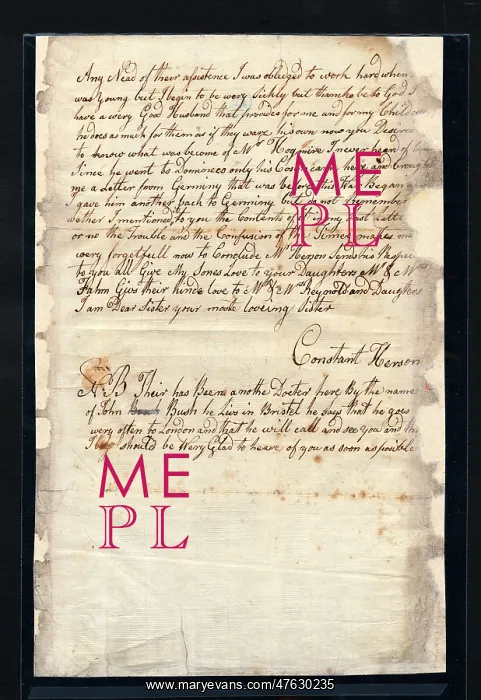 Any Nead of their assistence I was obledged to work hard when
was young but I begin to be very Sickly but thanks be to God I
have a very God Husband that provides for me and for my Children
he does as much for them as if they ware his own now you Deserve
to know what was become of Mr Hogmire I never hear of him
Since he went to Domineco only his Cosen came here and brought
me a Letter from Germiny that was before this War Began
I gave him another back to Germiny but do not Remember
wether I mentioned to you the Contents of it in my Last Letter
or no the Trouble and the Confusion of the Times makes me
wery forgetfull now to Conclude Mr Herson Sends his Respects
to you all Give My Sones Love to your Daughters Mr & Mrs
Fahm Givs their kinde love to Mr & Mrs Reynold and Daughters
I am Dear Sister your moste loveing Sister
Constant Herson
NB Their has Been anothe Docter here By the name
of John Bush he Livs in Bristel he says that he goes
wery often to London and that he will call and see you and the
I should be Wery Glad to heare of you as soon as posible
ME
PL
ME
PL
www.maryevans.com/47630235